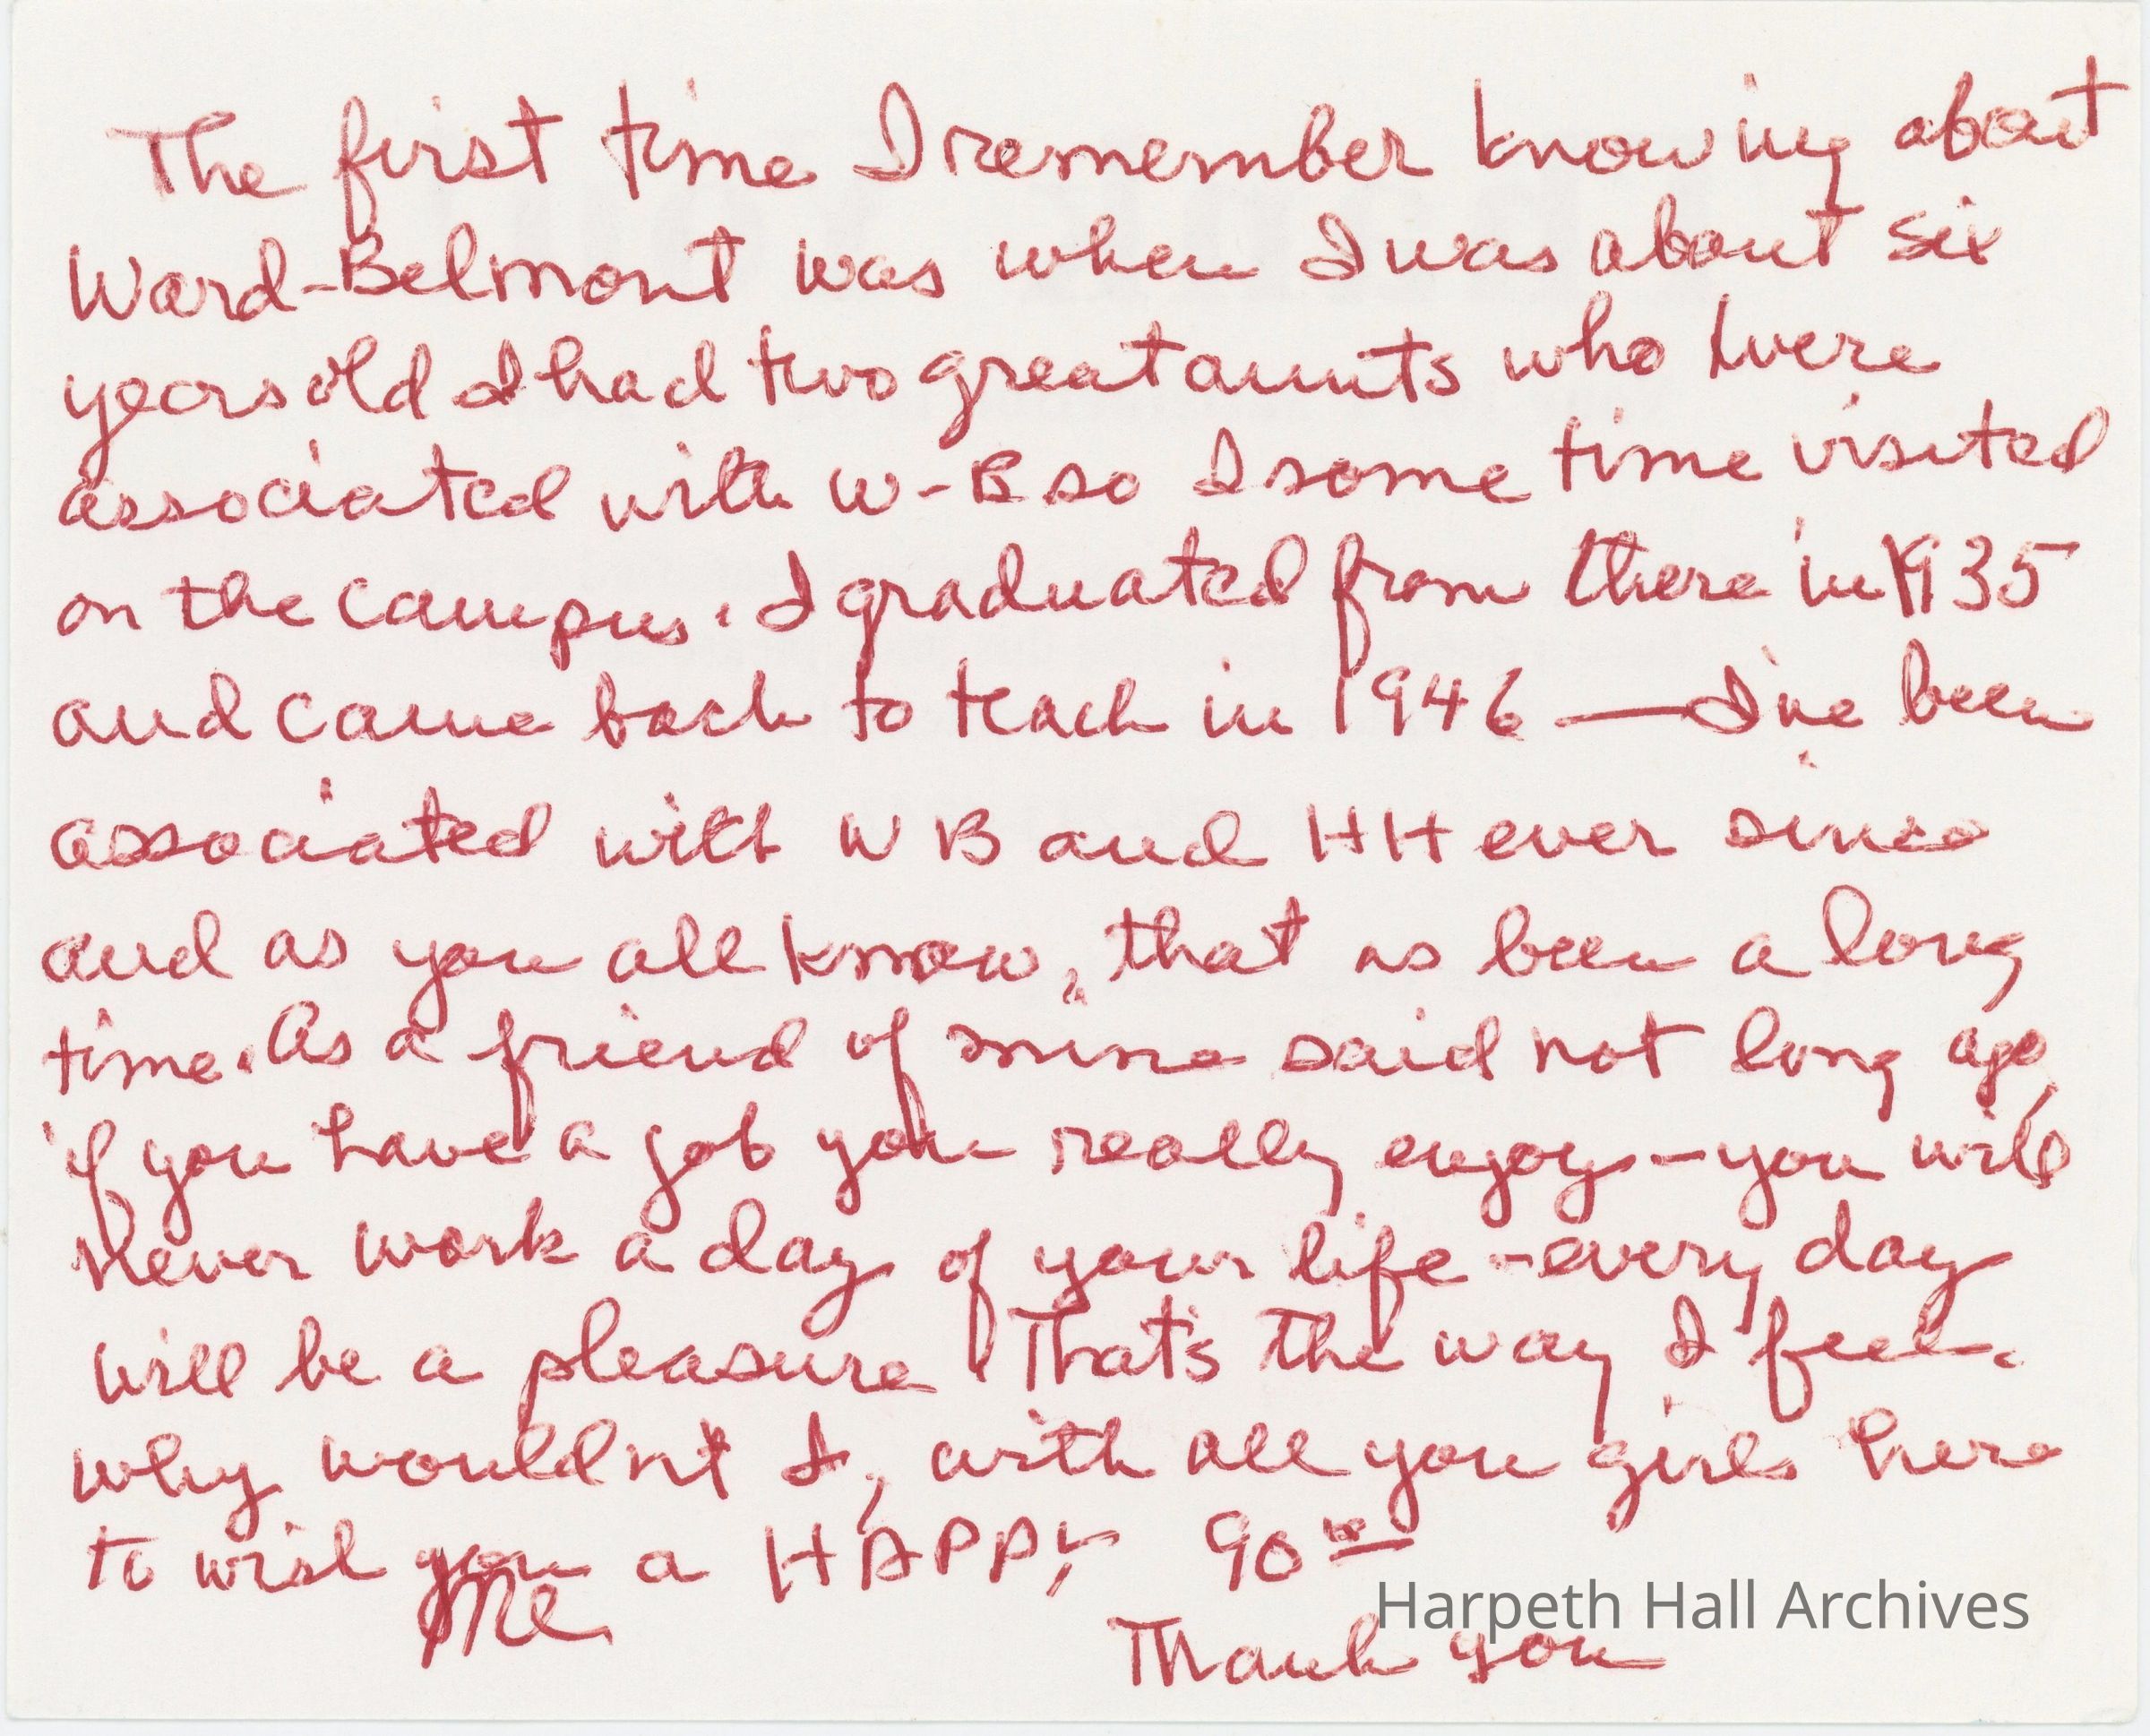 The first time I remember knowing about
Ward-Belmont was when I was about six
years old I had two great aunts who were
associated with W-B so I some time visited
on the campus. I graduated from there in 1935
and came back to teach in 1946 — I've been
associated with W B and H H ever since
and as you all know, that as been a long
time. As a friend of mine said not long ago,
if you have a job you really enjoy - you will
never work a day of your life - every day
will be a pleasure! That's the way I feel.
why wouldn't I, with all you girls here
to wish you a HAPPY 90th
me
Harpeth Hall Archives
Thank you